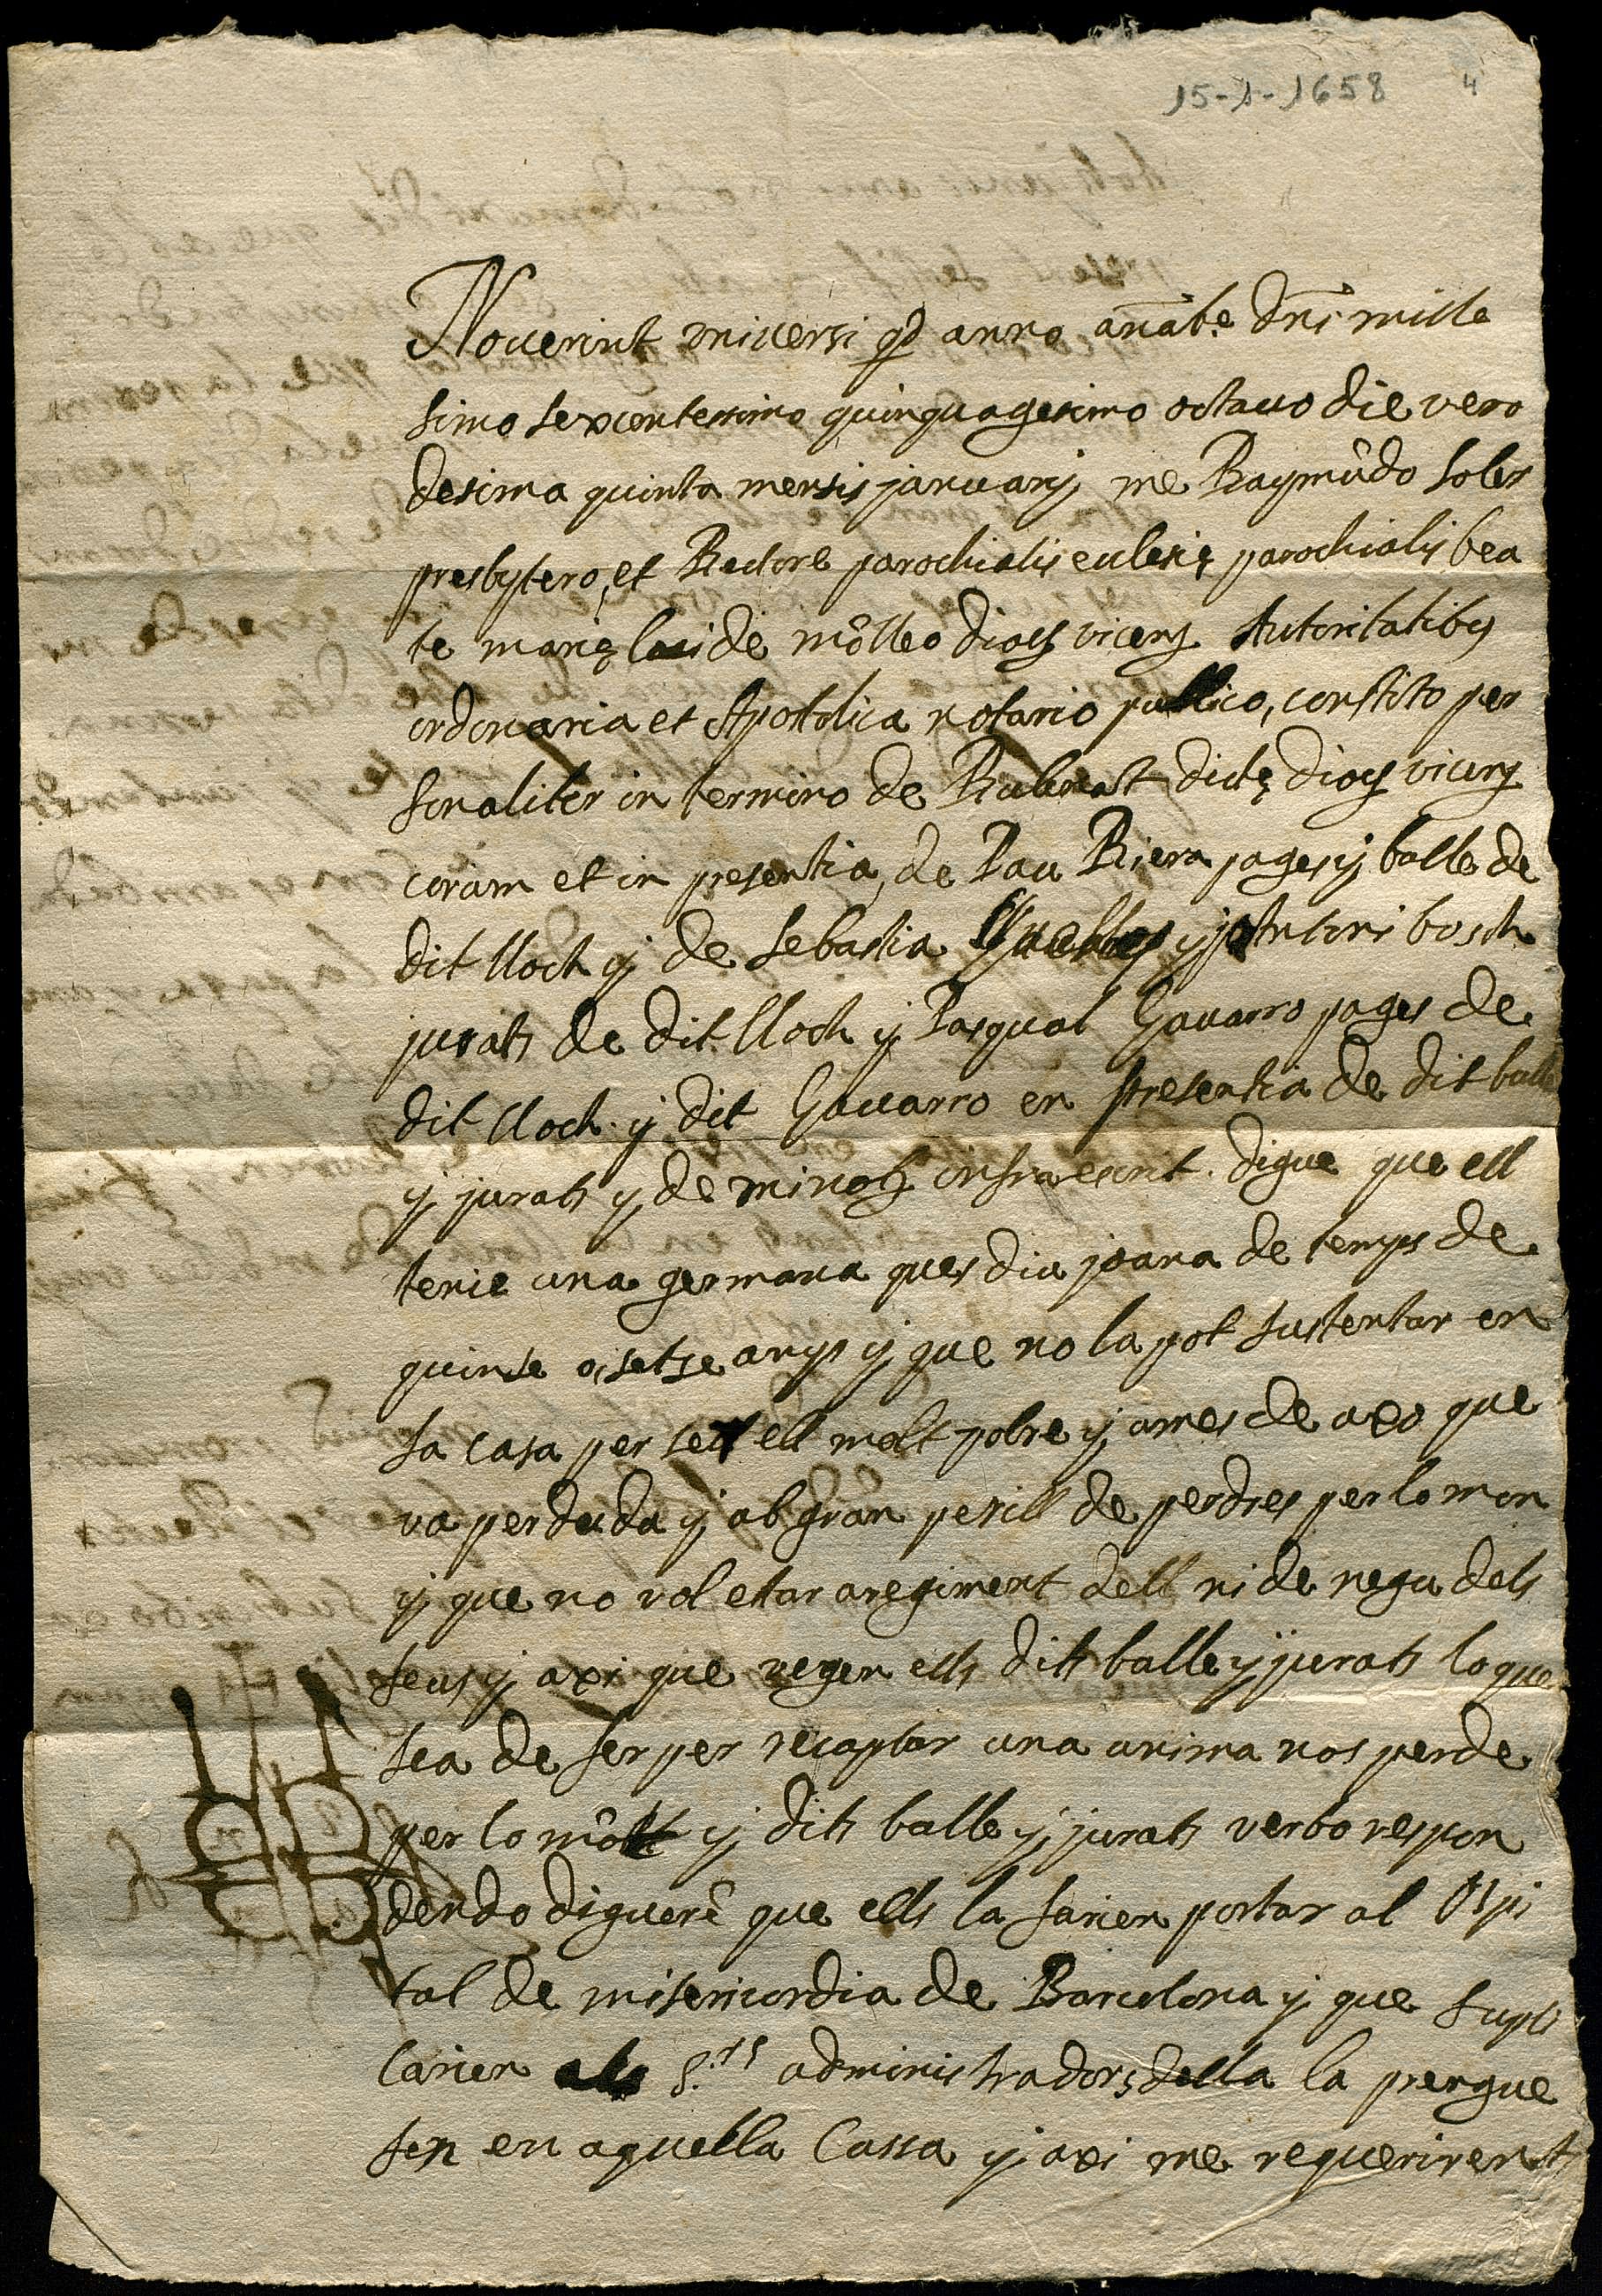 15-1-1658 4
Nouerint vniuersi qd anno a natte Dni mille
simo sexcentessimo quinquagesimo octauo die vero
desima quinta mensis januarij me Raymũdo soler
presbytero, et Rectore parochialis eclesię parochialis bea
te marię loci de mõlleo diocs vicens Autoritatibus
ordonaria et Apostolica notario publico, constito per
sonaliter in termino de dictę diocs vicens
coram et in presentia, de Pau Riera pages y balle de
dit lloch y de sebastia y Antoni bosch
jurats de dit lloch y Pasqual Gauarro pages de
dit lloch. y dit Gauarro en presentia de dit balle
y jurats y de mi noty infraescrit. digue que ell
tenie una germana ques diu joana de temps de
quinse o, setse anys y que no la pot sustentar en
sa casa per ser ell molt pobre y ames de axo que
va perduda y ab gran perill de perdres per lo mon
y que no vol estar a regiment dell ni de negu dels
seus y axi que vegen ells dits balle y jurats lo que
sea de fer per recaptar una anima nos perde
per lo mõ y dits balle y jurats verbo respon
dendo diguerẽ que ells la farien portar al Ospi
tal de misericordia de Barcelona y que supli
carien als s.rs administradors della la prengue
sen en aquella Cassa y axi me requeriren